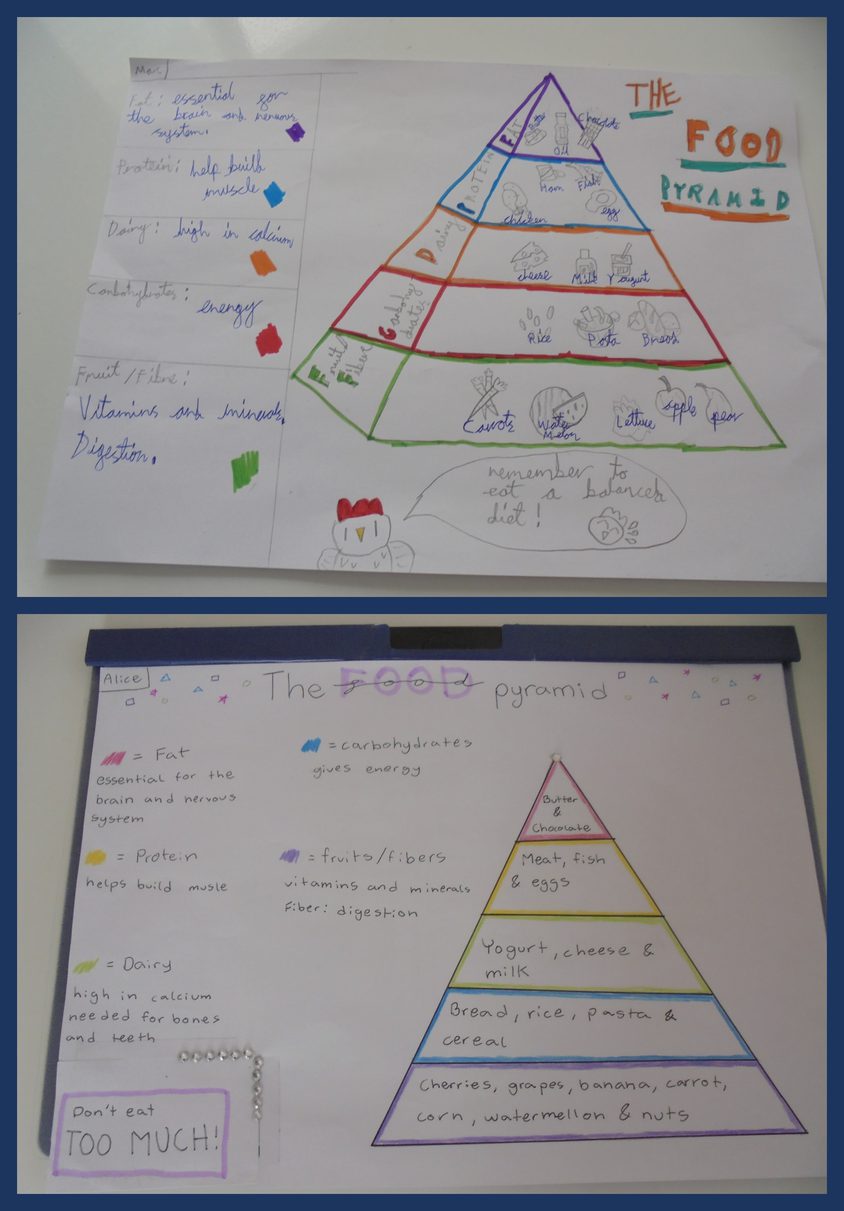 Max
THE
FOOD
PYRAMID
Fat: essential for
the brain and nervous
system.
Protein: help built
muscle
Dairy: high in calcium
Carbohydrates:
energy
Fruit/Fibre:
Vitamins and minerals.
Digestion.
FAT
Oil
Chocolate
PROTEIN
Ham
Fish
chicken
egg
Dairy
cheese
Milk
Yougurt
Carbohy
drates
Rice
Pasta
Bread
Fruits
Fiber
Carrots
Water
Melon
Lettuce
apple
pear
remember to
eat a balanced
diet!
Alice
The food FOOD pyramid
= Fat
essential for the
brain and nervous
system
= carbohydrates
gives energy
= Protein
helps build musle
= fruits/fibers
vitamins and minerals
Fiber: digestion
= Dairy
high in calcium
needed for bones
and teeth
Don't eat
TOO MUCH!
Butter
&
Chocolate
Meat, fish
& eggs
Yogurt, cheese &
milk
Bread, rice, pasta &
cereal
Cherries, grapes, banana, carrot,
corn, watermellon & nuts